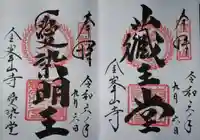 奉拝
蔵王堂
令和六年
九月六日
金峯山寺
奉拝
愛染明王
令和六年
九月六日
金峯山寺
愛染堂